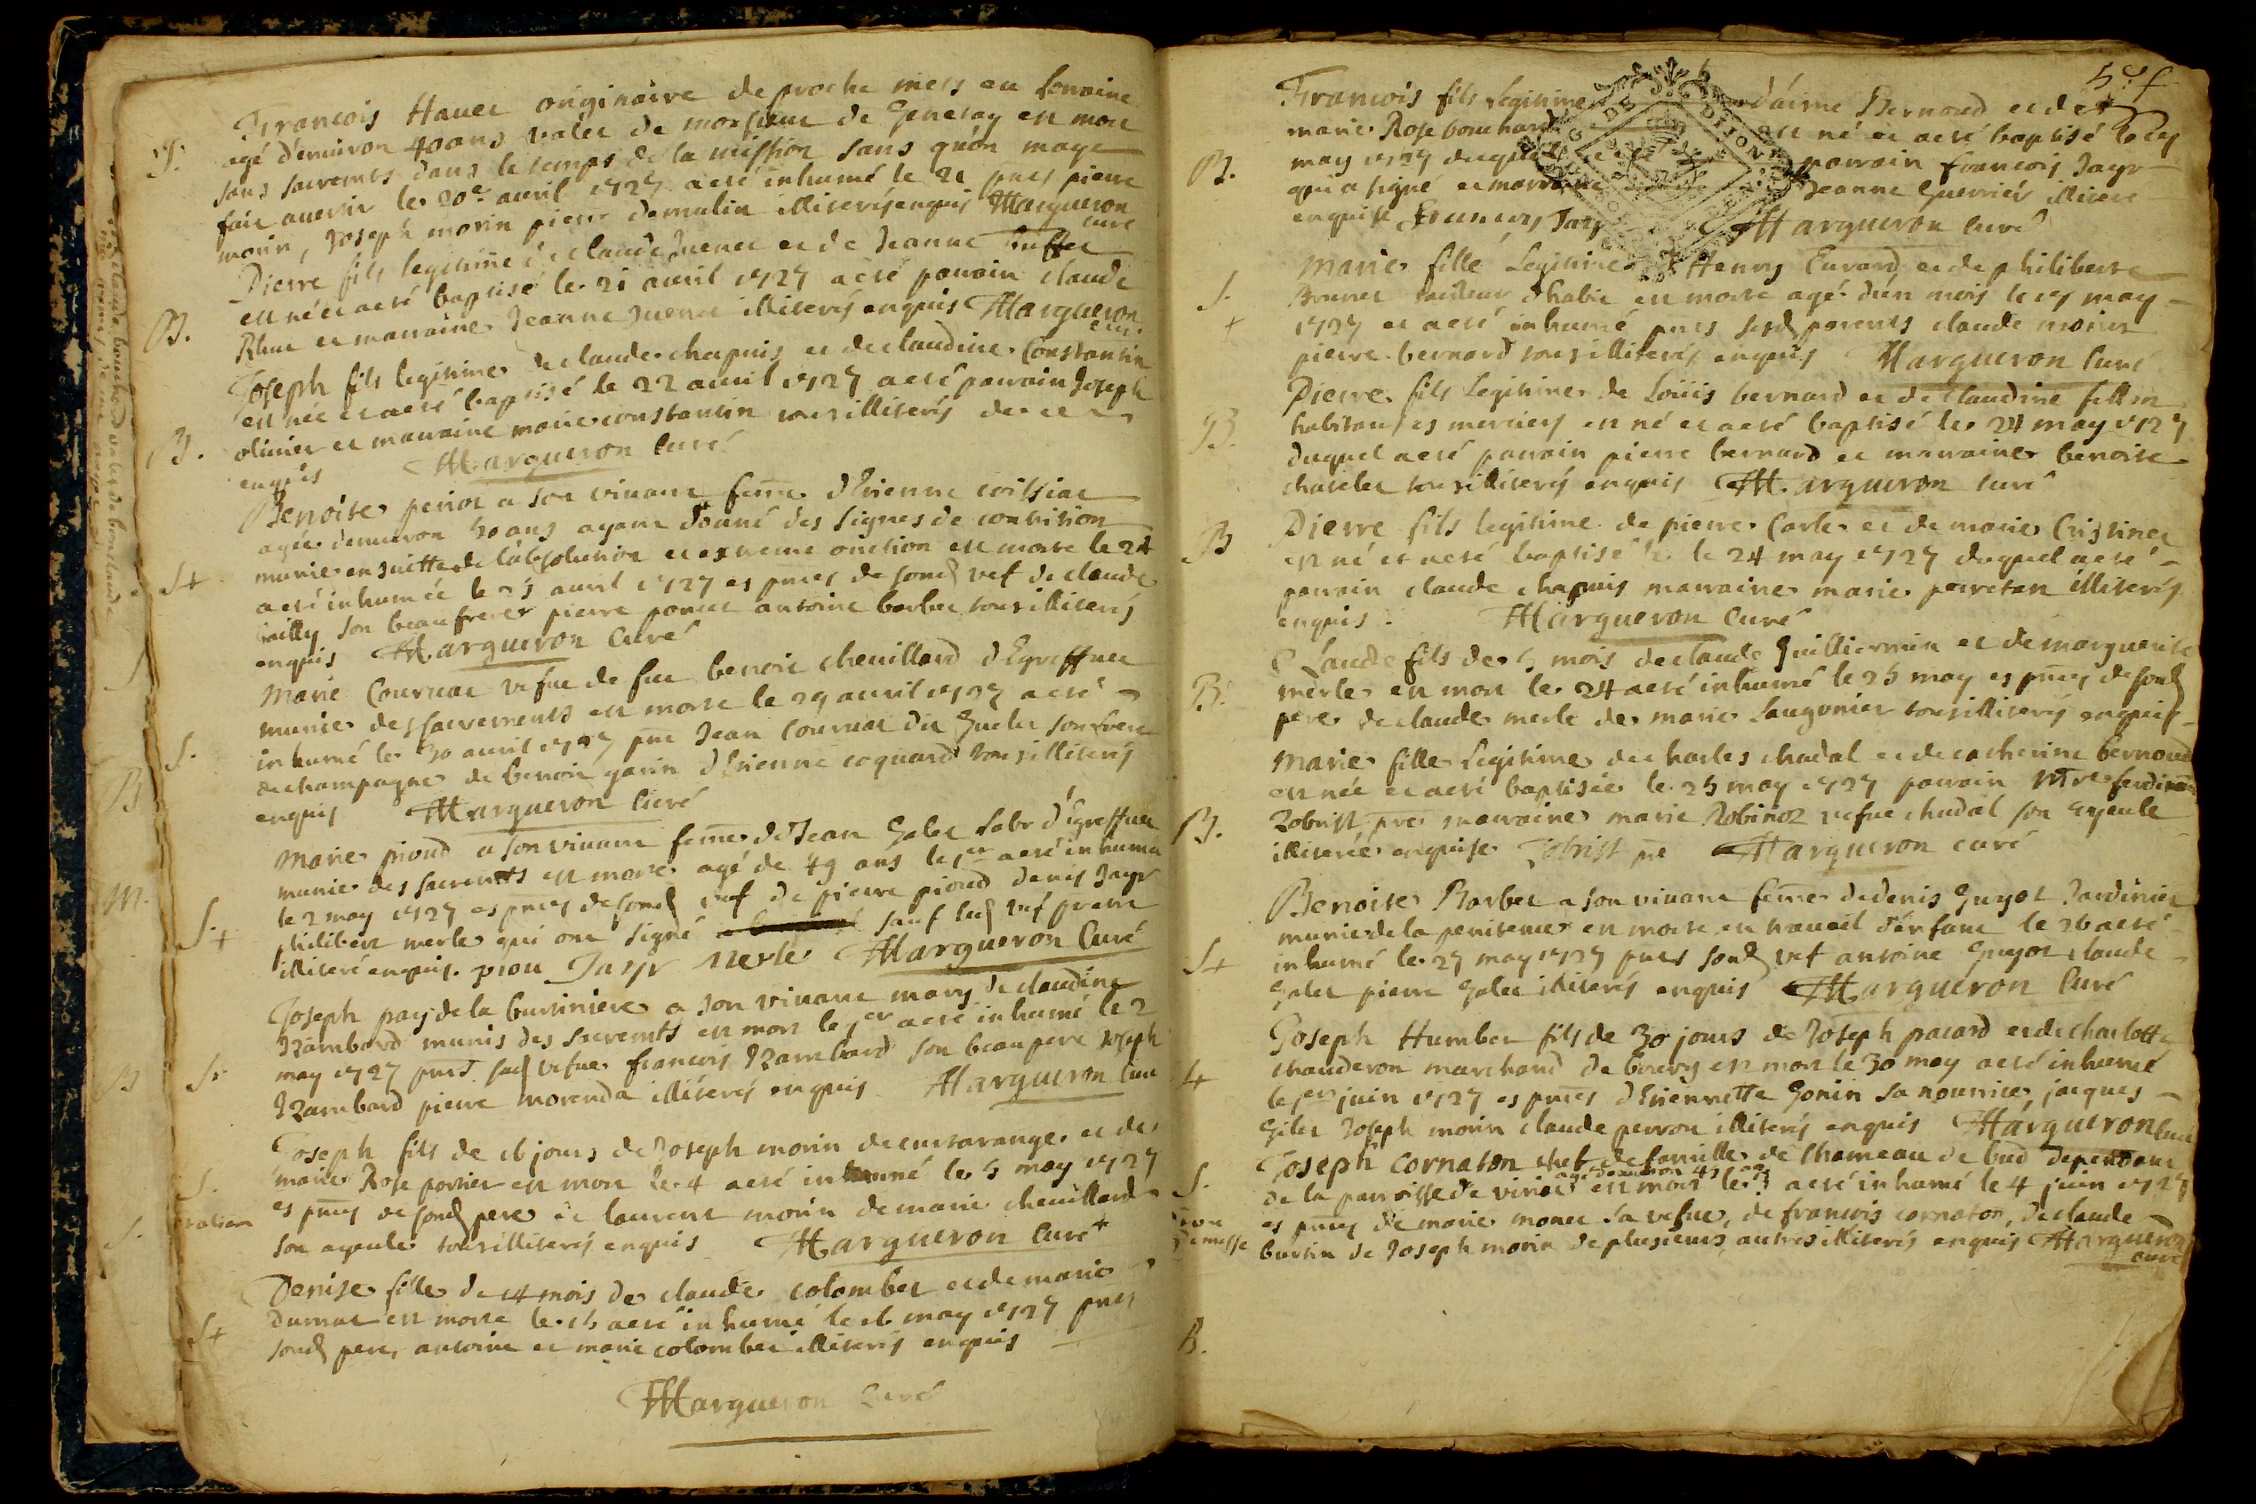 S.
Francois Hauet originaire de proche mets en Lorraine
agé d'environ 40 ans valet de monsieur de Genetay est mort
sans sacremts dans le temps de la mission sans qu'on m'aye
fait avertir le 20e avril 1727 a eté inhumé le 21 pnts pierre
morin, Joseph morin pierre demulin illiterés enquis Margueron
curé
B.
Pierre fils legitime de claude Juenet et de Jeanne Buffet
est né et a eté baptisé le 21 avril 1727 a eté parrain claude
et marraine Jeanne Juenet illiterés enquis Margueron
curé
B.
Joseph fils legitime de claude chapuis et de claudine Constantin
est née et a eté baptisé le 22 avril 1727 a eté parrain Joseph
olinier et marraine marie constantin tous illiterés de ce
enquis Margueron Curé
S+
Benoite periot a son vivant feme d'Etienne
agée d'environ 50 ans ayant donné des signes de contrition
munie ensuitte de l'absolution et extreme onction est morte le 24
a eté inhumée le 25 avril 1727 es pnces de sond vef de claude
son beaufrere pierre poncet antoine barbet tous illiterés
enquis Margueron Curé
S.
Marie Cournat vefue de feu benoit cheuillard d'Egreffuet
munie des sacrements est morte le 29 avril 1727 a eté
inhumé le 30 avril 1727 pnt Jean Cournat dit son frere
de champagne de benoit garin d'Etienne coquard tous illiterés
enquis Margueron Curé
S+
Marie pioud a son vivant feme de Jean Galet Labr d'Egreffuet
munie des sacremts est morte agé de 49 ans le 1er a eté inhumé
le 2 may 1727 es pnces de sond vef de pierre pioud denis Jayr
philibert merle qui ont signé sauf led vef
illiteré enquis. piou Jayr Merle Margueron Curé
S+
Joseph pay de la burtiniere a son vivant mary de claudine
Izambard munis des sacremts est mort le 1er a eté inhumé le 2
may 1727 pnts sad vefue francois Izambard son beaupere Joseph
Izambard pierre morenda illiterés enquis Margueron Curé
S.
Joseph fils de 16 jours de Joseph morin de curtarange et de
marie Rose portier est mort le 4 a eté inhumé le 5 may 1727
es pnces de sond pere de laurent morin de marie cheuillard
son ayeule tous illiterés enquis Margueron Curé
S+
Denise fille de 14 mois de claude colombet et de marie
Dumat est morte le 15 a eté inhumé le 16 may 1727 pnts
sond pere, antoine et marie colombet illiterés enquis
Margueron Curé
5e f
B.
Francois fils legitime d'aime Bernoud et de
marie Rose bouchard est né et a eté baptisé le
may 1727 duquel parrain francois Jayr
qui a signé et marraine Jeanne Guerrier illiteré
enquise Francois Jayr Margueron Curé
S.
+
Marie fille Legitime d'Henry Euvard et de philiberte
Brunet tailleur d'habit est morte agé d'un mois le may
1727 et a eté inhumé pnts sesd parents claude morin
pierre bernard tous illiterés enquis Margueron Curé
B.
Pierre fils Legitime de Loüis bernard et de Claudine fillion
habitants es merciers est né et a eté baptisé le 24 may 1727
duquel a eté parrain pierre bernard et marraine benoite
chatelet tous illiterés enquis Margueron Curé
B
Pierre fils legitime de pierre Carle et de marie Cristinet
est né et a eté baptisé le 24 may 1727 duquel a eté
parrain claude chapuis marraine marie perretan illiterés
enquis. Margueron Curé
B.
Claude fils de 5 mois de claude Guilliermin et de marguerite
merle est mort le 24 a eté inhumé le 25 may es pnces de sond
pere de claude merle de marie Laugonier tous illiterés enquis
B.
Marie fille Legitime de charles chadal et de catherine bernoud
est née et a eté baptisée le 25 may 1727 parrain Mre ferdinan
Zobrist pre marraine marie Robinot vefue chadal son ayeule
illiterée enquise Zobrist pre Margueron curé
S+
Benoite Barbet a son vivant feme de denis Guyot Jardinier
munie de la penitence est morte en travail d'enfant le 26 a eté
inhumé le 27 may 1727 pnts sond vef antoine Guyot claude
Galet pierre Galet illiterés enquis Margueron Curé
Joseph Humbert fils de 30 jours de Joseph pacard et de charlotte
chanderon marchand de bourg est mort le 30 may a eté inhumé
le 1er juin 1727 es pnces d'Etiennette Gonin sa nourrice, jacques
Gilet Joseph morin claude perron illiterés enquis Margueron Curé
S.
Joseph Cornaton chef de famille de l'hameau de bud dependant
de la parroisse de viriat agé d'environ 45 ans est mort le 3 a eté inhumé le 4 juin 1727
es pnces de marie monet sa vefue, de francois cornaton, de claude
burtin de Joseph morin de plusieurs autres illiterés enquis Margueron
curé
B.